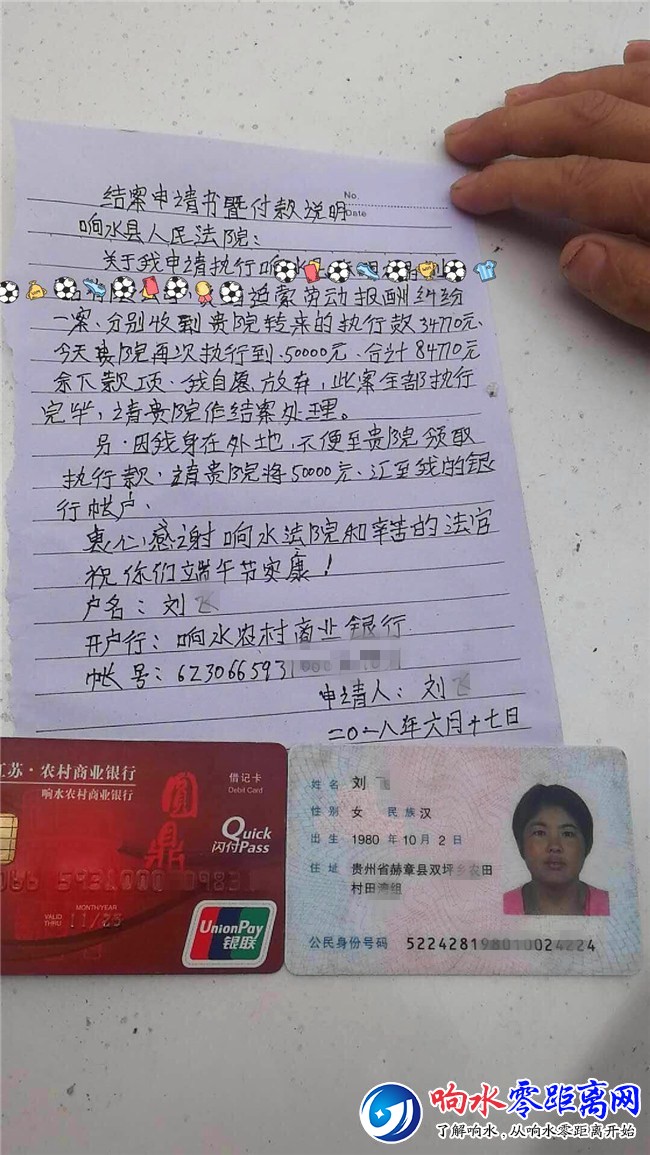 No.
Date
结案申请书暨付款说明
响水县人民法院：
关于我申请执行响水
追索劳动报酬纠纷
一案、分别收到贵院转来的执行款34770元、
今天贵院再次执行到50000元、合计84770元
余下款项、我自愿放弃，此案全部执行
完毕，请贵院作结案处理。
另、因我身在外地，不便至贵院领取
执行款、请贵院将50000元、汇至我的银
行帐户、
衷心感谢响水法院和辛苦的法官
祝你们端午节安康！
户名：刘
开户行：响水农村商业银行
帐号：623066593
申请人：刘
二〇一八年六月十七日
江苏·农村商业银行
响水农村商业银行
借记卡
Debit Card
圆鼎
Quick
闪付Pass
MONTH/YEAR
VALID THRU 11/25
UnionPay
银联
姓名 刘
性别 女 民族 汉
出生 1980 年 10 月 2 日
住址 贵州省赫章县双坪
村田
公民身份号码 5224281
响水零距离网
了解响水，从响水零距离开始